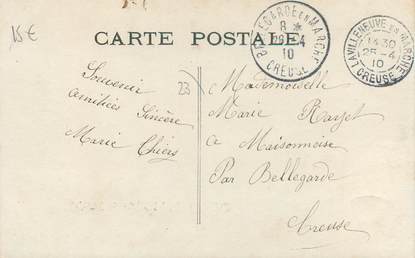 15 €
CARTE POSTALE
BELLEGARDE EN MARCHE
8 *
25-4
10
CREUSE
LAVILLENEUVE-EN-MARCHE
14 30
25-4
10
CREUSE
23
Souvenir
amitiés Sincère
Marie
Mademoiselle
Marie
a Maisonneuve
Par Bellegarde
Creuse